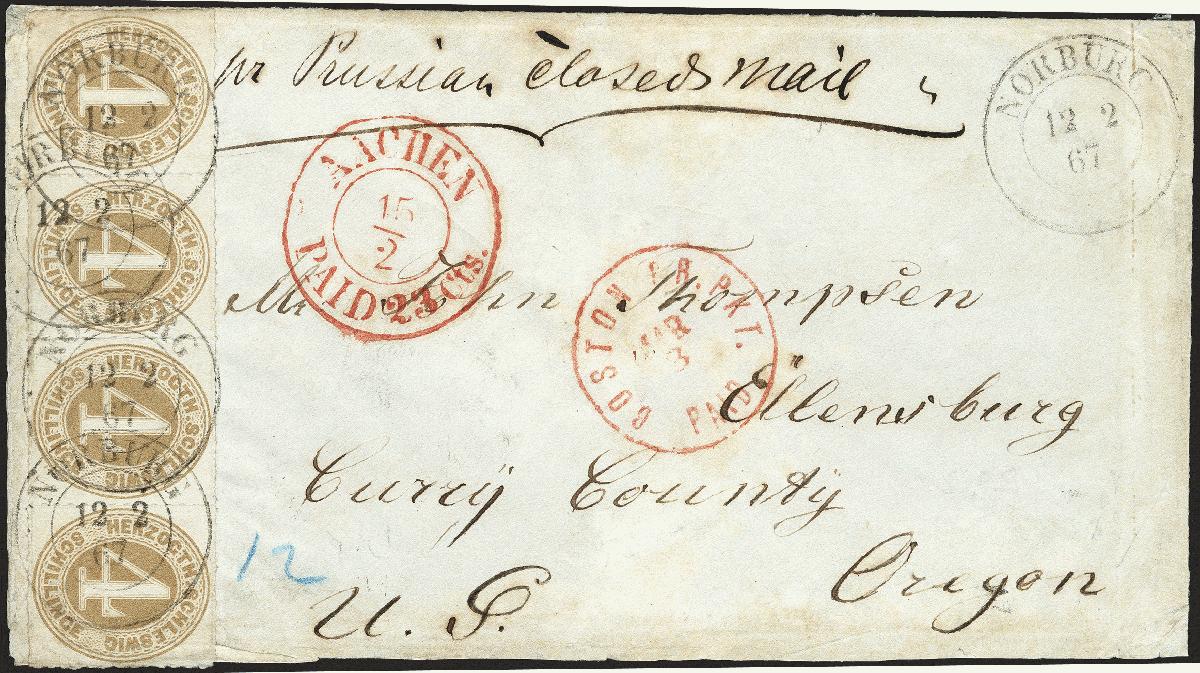 pr Prussian closed mail
NORBURG
12 2
67
AACHEN
15
2
PAID 23 Cts.
BOSTON BR. PKT.
MAR
3
PAID
Mr. John Thompsen
Ellensburg
Curry County
Oregon
U. S.
12
HERZOGTH. SCHLESWIG
4
VIERTE SCHILLING
NORBURG
12 2
67
HERZOGTH. SCHLESWIG
4
SCHILLING
NORBURG
12 2
67
HERZOGTH. SCHLESWIG
4
SCHILLING
NORBURG
12 2
67
HERZOGTH. SCHLESWIG
4
SCHILLING
NORBURG
12 2
67